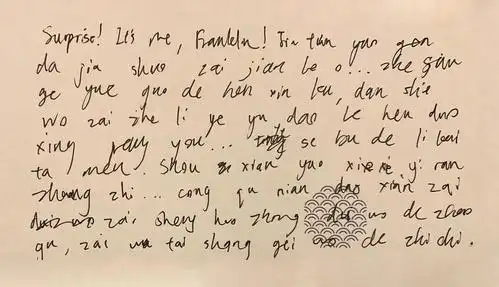 Surprise! It's me, Franklin! Jin tian yao gen
da jia shuo zai jian le o... zhe san
ge yue guo de hen xin ku, dan shi
wo zai zhe li ye yu dao le hen duo
xing peng you... se bu de li kai
ta men. Shou xian yao xie xie yi ran
zhang zhi... cong qu nian dao xian zai
zai sheng huo zhong dui wo de zhao
gu, zai wu tai shang gei de zhi chi.